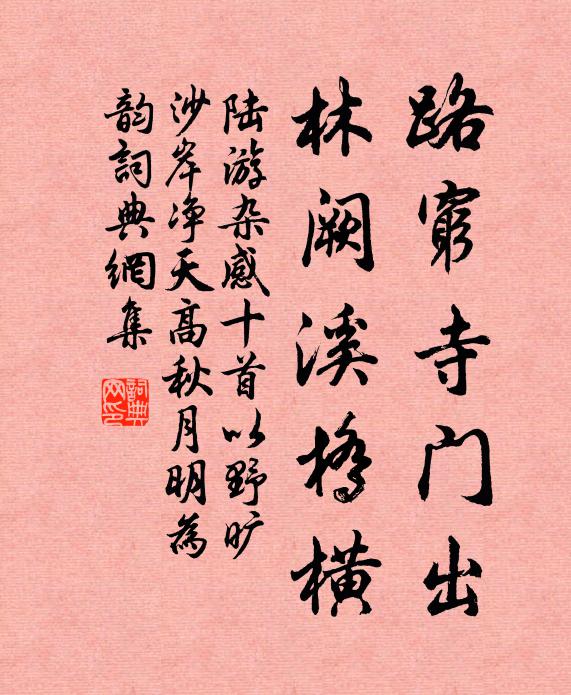 路窮寺门出
林阙溪橋横
陆游杂感十首以野旷
沙岸净天高秋月明為
韵詞典網集
詞典网印